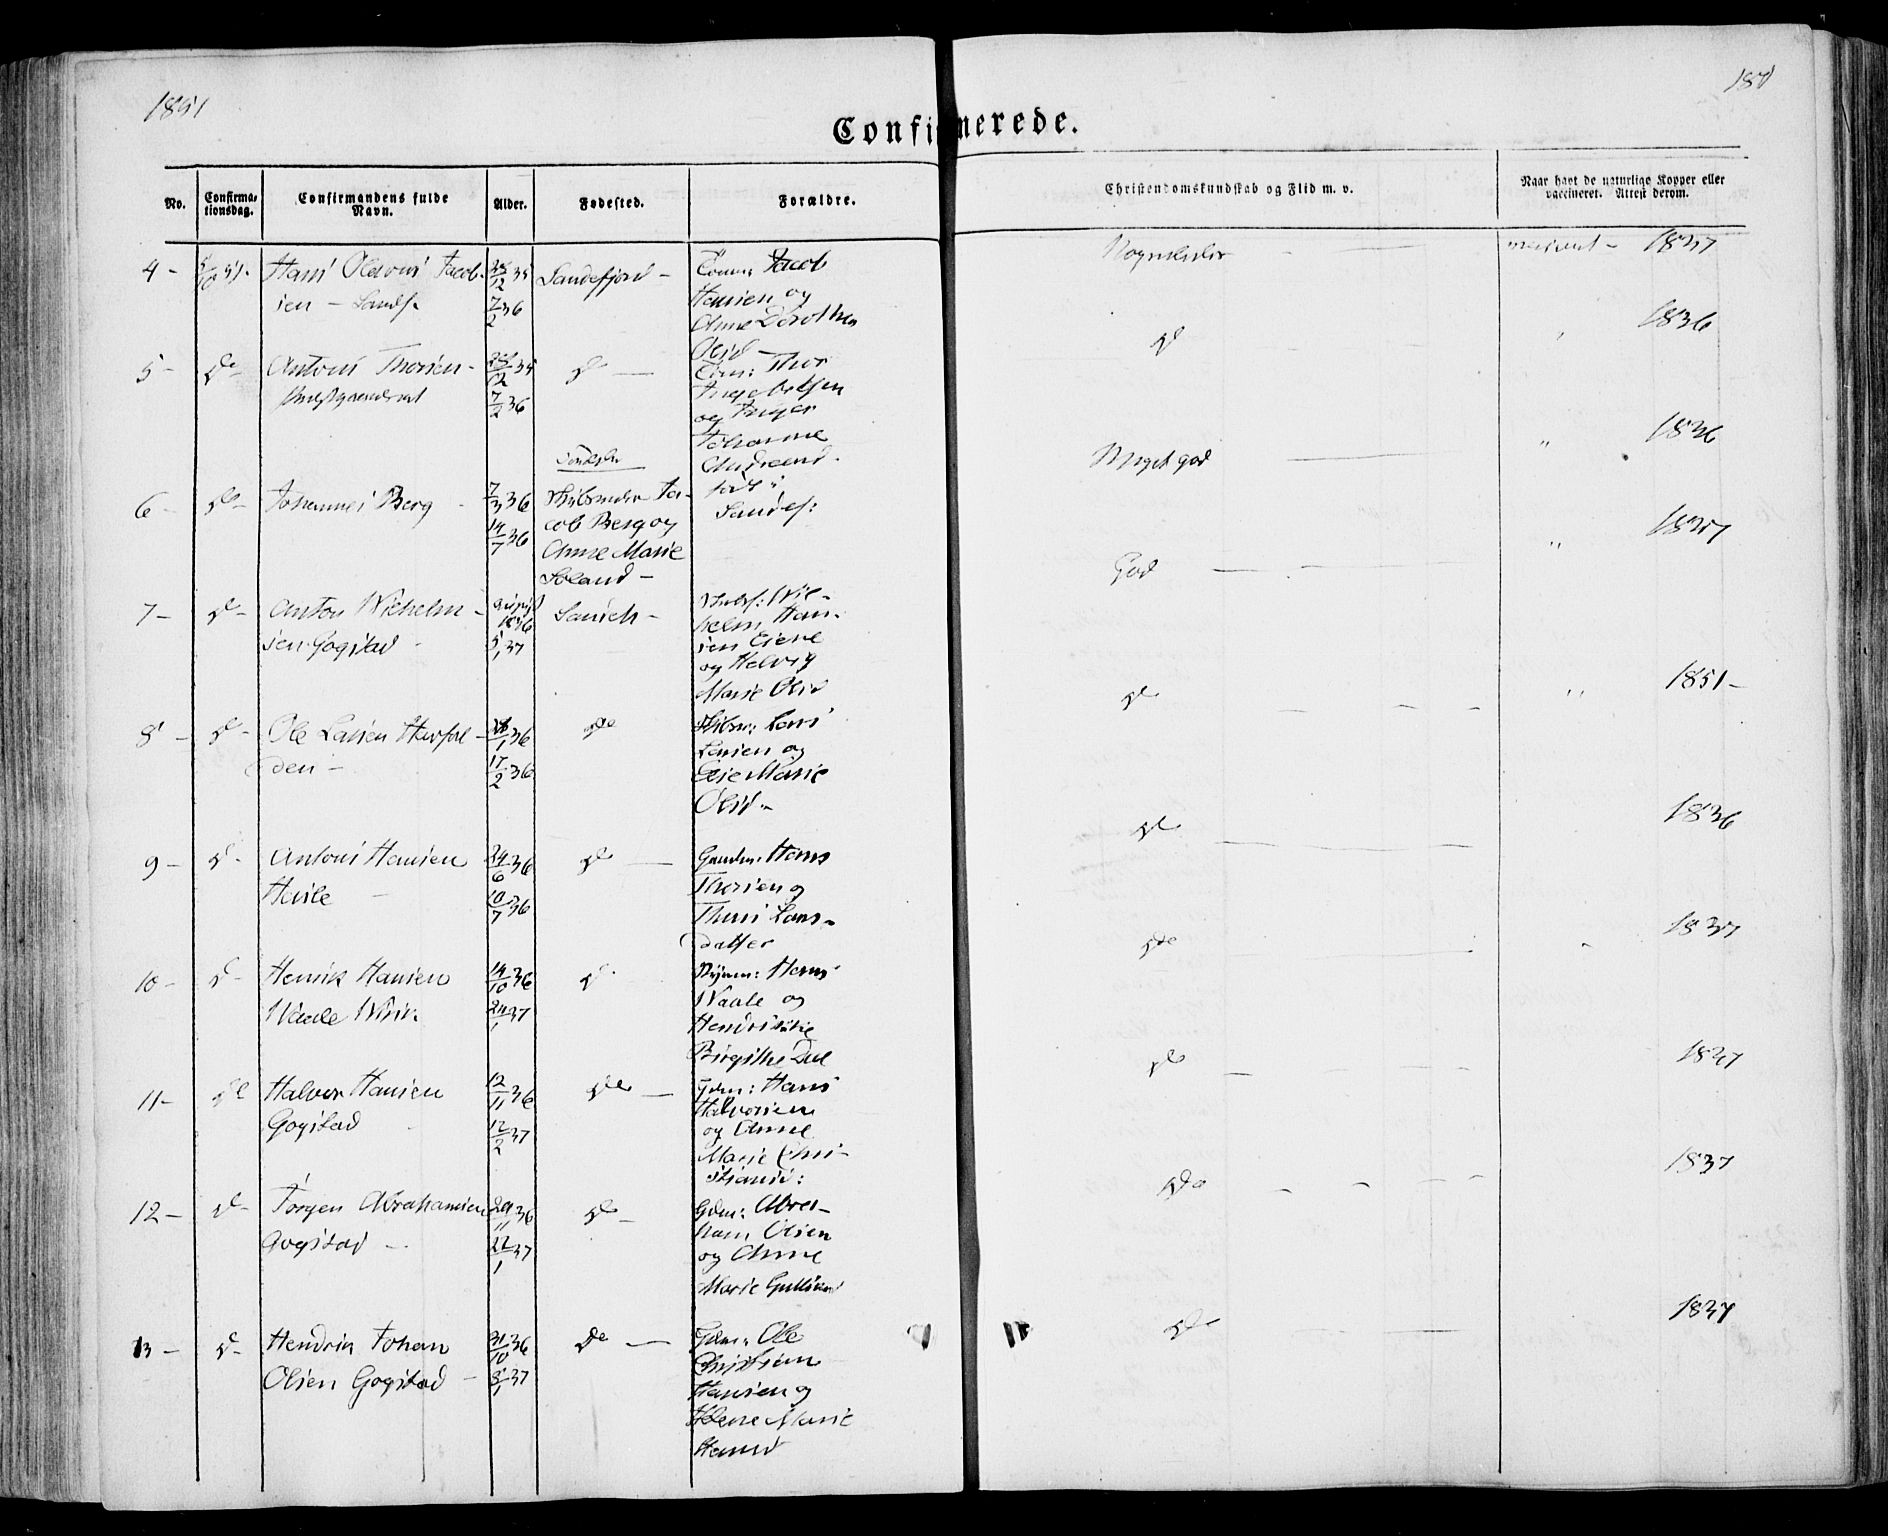 1851
187
Confirmerede.
No.
Confirma-
tionsdag.
Confirmandens fulde
Navn.
Alder.
Fødested.
Forældre.
Christendomskundskab og Flid m. v.
Naar havt de naturlige Kopper eller
vaccineret. Attest derom.
4 - 5/10 51. Hans Jacob-
sen - Sandf. 7/2 36 Sandefjord -
Tømm: Jacob
Hansen og
Anne Dorothea
Olsd -
1837
5 - Do - Antoni Thorsen - 7/2 36 Do -
Tømm: Thor
Ingebretsen
og Inger
Johanne
Andreasd.
Do
1836
6 - Do - Johannes Berg - 7/3 36 14/7 36
Skibsreder Ja-
cob Berg og
Anne Marie
Søland -
født i
Sandef:
Meget god
" 1836
7 - Do - Anton Wilhelm -
sen Gogstad
August
1836
5/1 37
Sandeh -
Wil-
helm Han-
sen Eiene
og Helvig
Marie Olsd
God
" 1837
8 - Do - Ole Larsen Havfol -
den - 1/36 17/2 36 Do
Skibsm: Lars
Larsen og
Elie Marie
Olsd -
Do
" 1851 -
9 - Do - Antoni Hansen
Hasle 24/6 36 10/7 36 Do -
Gaardm. Hans
Thorsen og
Thuri Lars-
datter
Do
1836
10 - Do - Henrik Hansen
Waale 14/10 36 24/1 37 Do
Hans
Waale og
Hendrikke
Birgithe
Do
1837
11 - Do Halvor Hansen
Gogstad 12/11 36 12/2 37 Do -
Gdm: Hans
Halvorsen
og Anne
Marie Chri-
stiansd:
Do
1837
12 - Do - Jørgen Abrahamsen
Gogstad - 29/11 36 22/1 37 Do -
Gdm: Abra-
ham Olsen
og Anne
Marie Gulliksd
Do
1837
13 - Do - Hendrik Johan
Olsen Gogstad - 31/10 36 8/1 37 Do -
Gdm: Ole
Christian
Hansen og
Helene Marie
Hansd
Do
1837